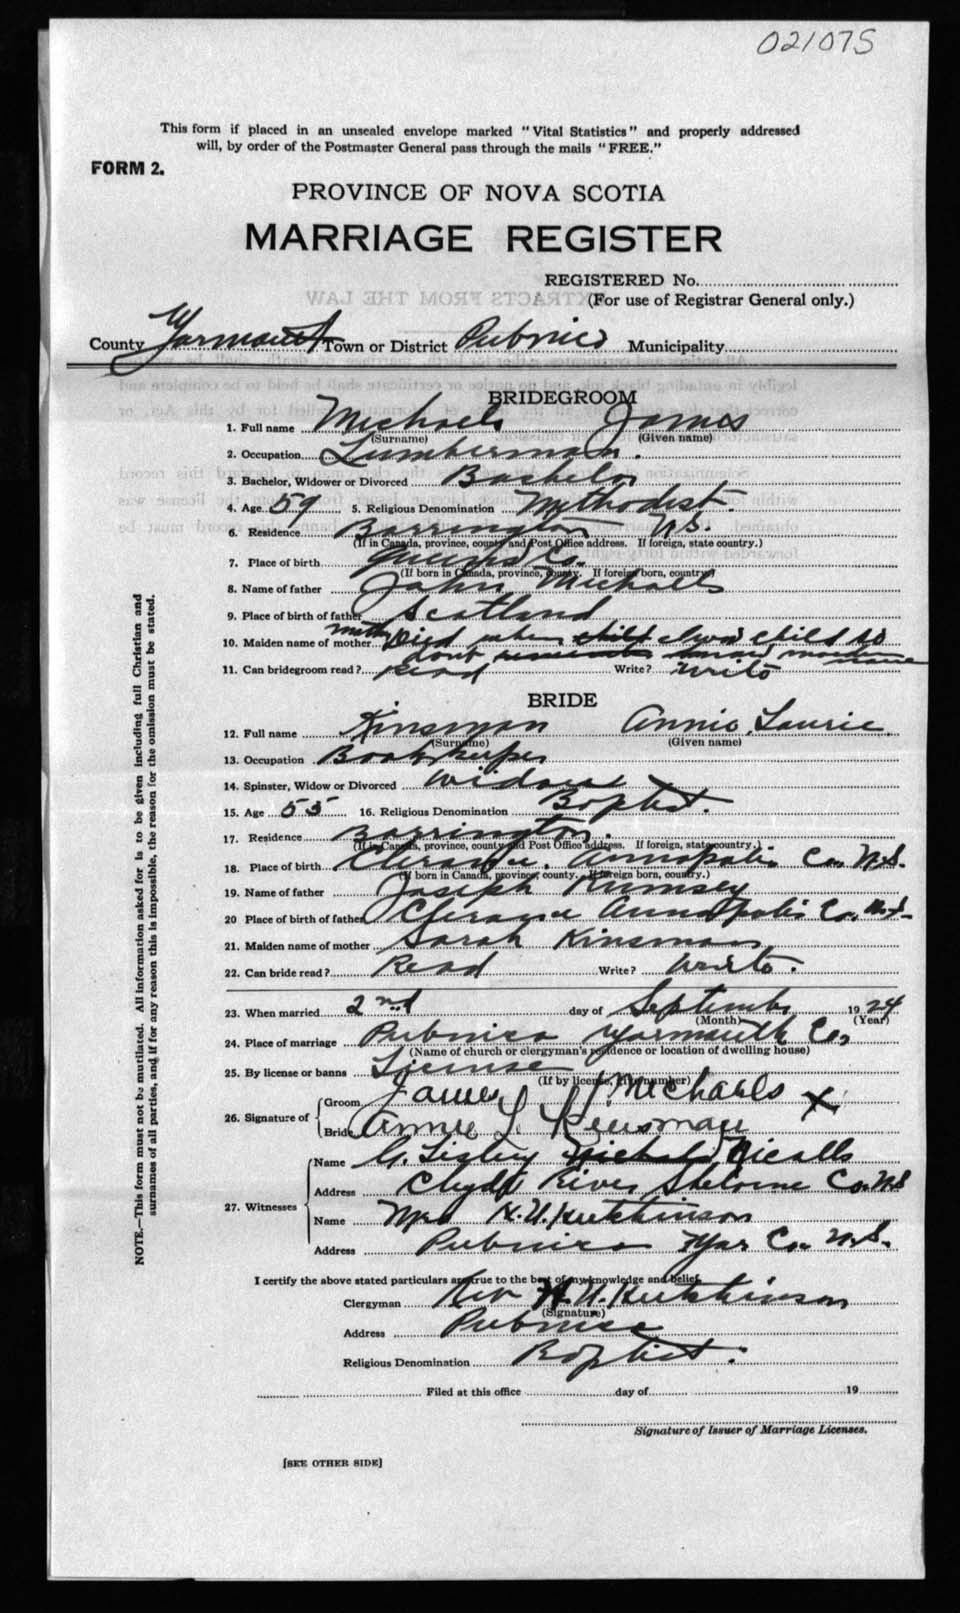 021075
This form if placed in an unsealed envelope marked "Vital Statistics" and properly addressed
will, by order of the Postmaster General pass through the mails "FREE."
FORM 2.
PROVINCE OF NOVA SCOTIA
MARRIAGE REGISTER
REGISTERED No.
(For use of Registrar General only.)
EXTRACTS FROM THE LAW
County Yarmouth Town or District Pubnico Municipality
BRIDEGROOM
1. Full name Michaels James
(Surname) (Given name)
2. Occupation Lumberman.
3. Bachelor, Widower or Divorced Bachelor
4. Age 59 5. Religious Denomination Methodist.
6. Residence Barrington N.S.
(If in Canada, province, county and Post Office address. If foreign, state country.)
7. Place of birth Queens Co.
(If born in Canada, province, county. If foreign born, country)
8. Name of father John Michaels
9. Place of birth of father Scotland
10. Maiden name of mother mother Died when child I was child so
dont name
11. Can bridegroom read? Read Write? Write
BRIDE
12. Full name Kinsman Annie Laurie.
(Surname) (Given name)
13. Occupation Bookkeeper
14. Spinster, Widow or Divorced Widow
15. Age 55 16. Religious Denomination Baptist.
17. Residence Barrington.
(If in Canada, province, county and Post Office address. If foreign, state country.)
18. Place of birth Annapolis Co. N.S.
(If born in Canada, province, county. If foreign born, country.)
19. Name of father Joseph Rumsey
20 Place of birth of father Annapolis Co. N.S.
21. Maiden name of mother Sarah Kinsman
22. Can bride read? Read Write? Write.
23. When married 2nd day of September 1924
(Month) (Year)
24. Place of marriage Pubnico Yarmouth Co,
(Name of church or clergyman's residence or location of dwelling house)
25. By license or banns License
(If by license, give number)
26. Signature of Groom James Michaels X
Bride Annie L Kinsman
27. Witnesses
Name G. Nicalls
Address Clyde River Shelburne Co. N.S
Name Mrs H. U. Hutchinson
Address Pubnico Yar Co. N.S.
I certify the above stated particulars are true to the best of my knowledge and belief.
Clergyman Rev H. U. Hutchinson
(Signature)
Address Pubnico
Religious Denomination Baptist.
Filed at this office day of 19
Signature of Issuer of Marriage Licenses.
[SEE OTHER SIDE]
NOTE.—This form must not be mutilated. All information asked for is to be given including full Christian and
surnames of all parties, and if for any reason this is impossible, the reason for the omission must be stated.